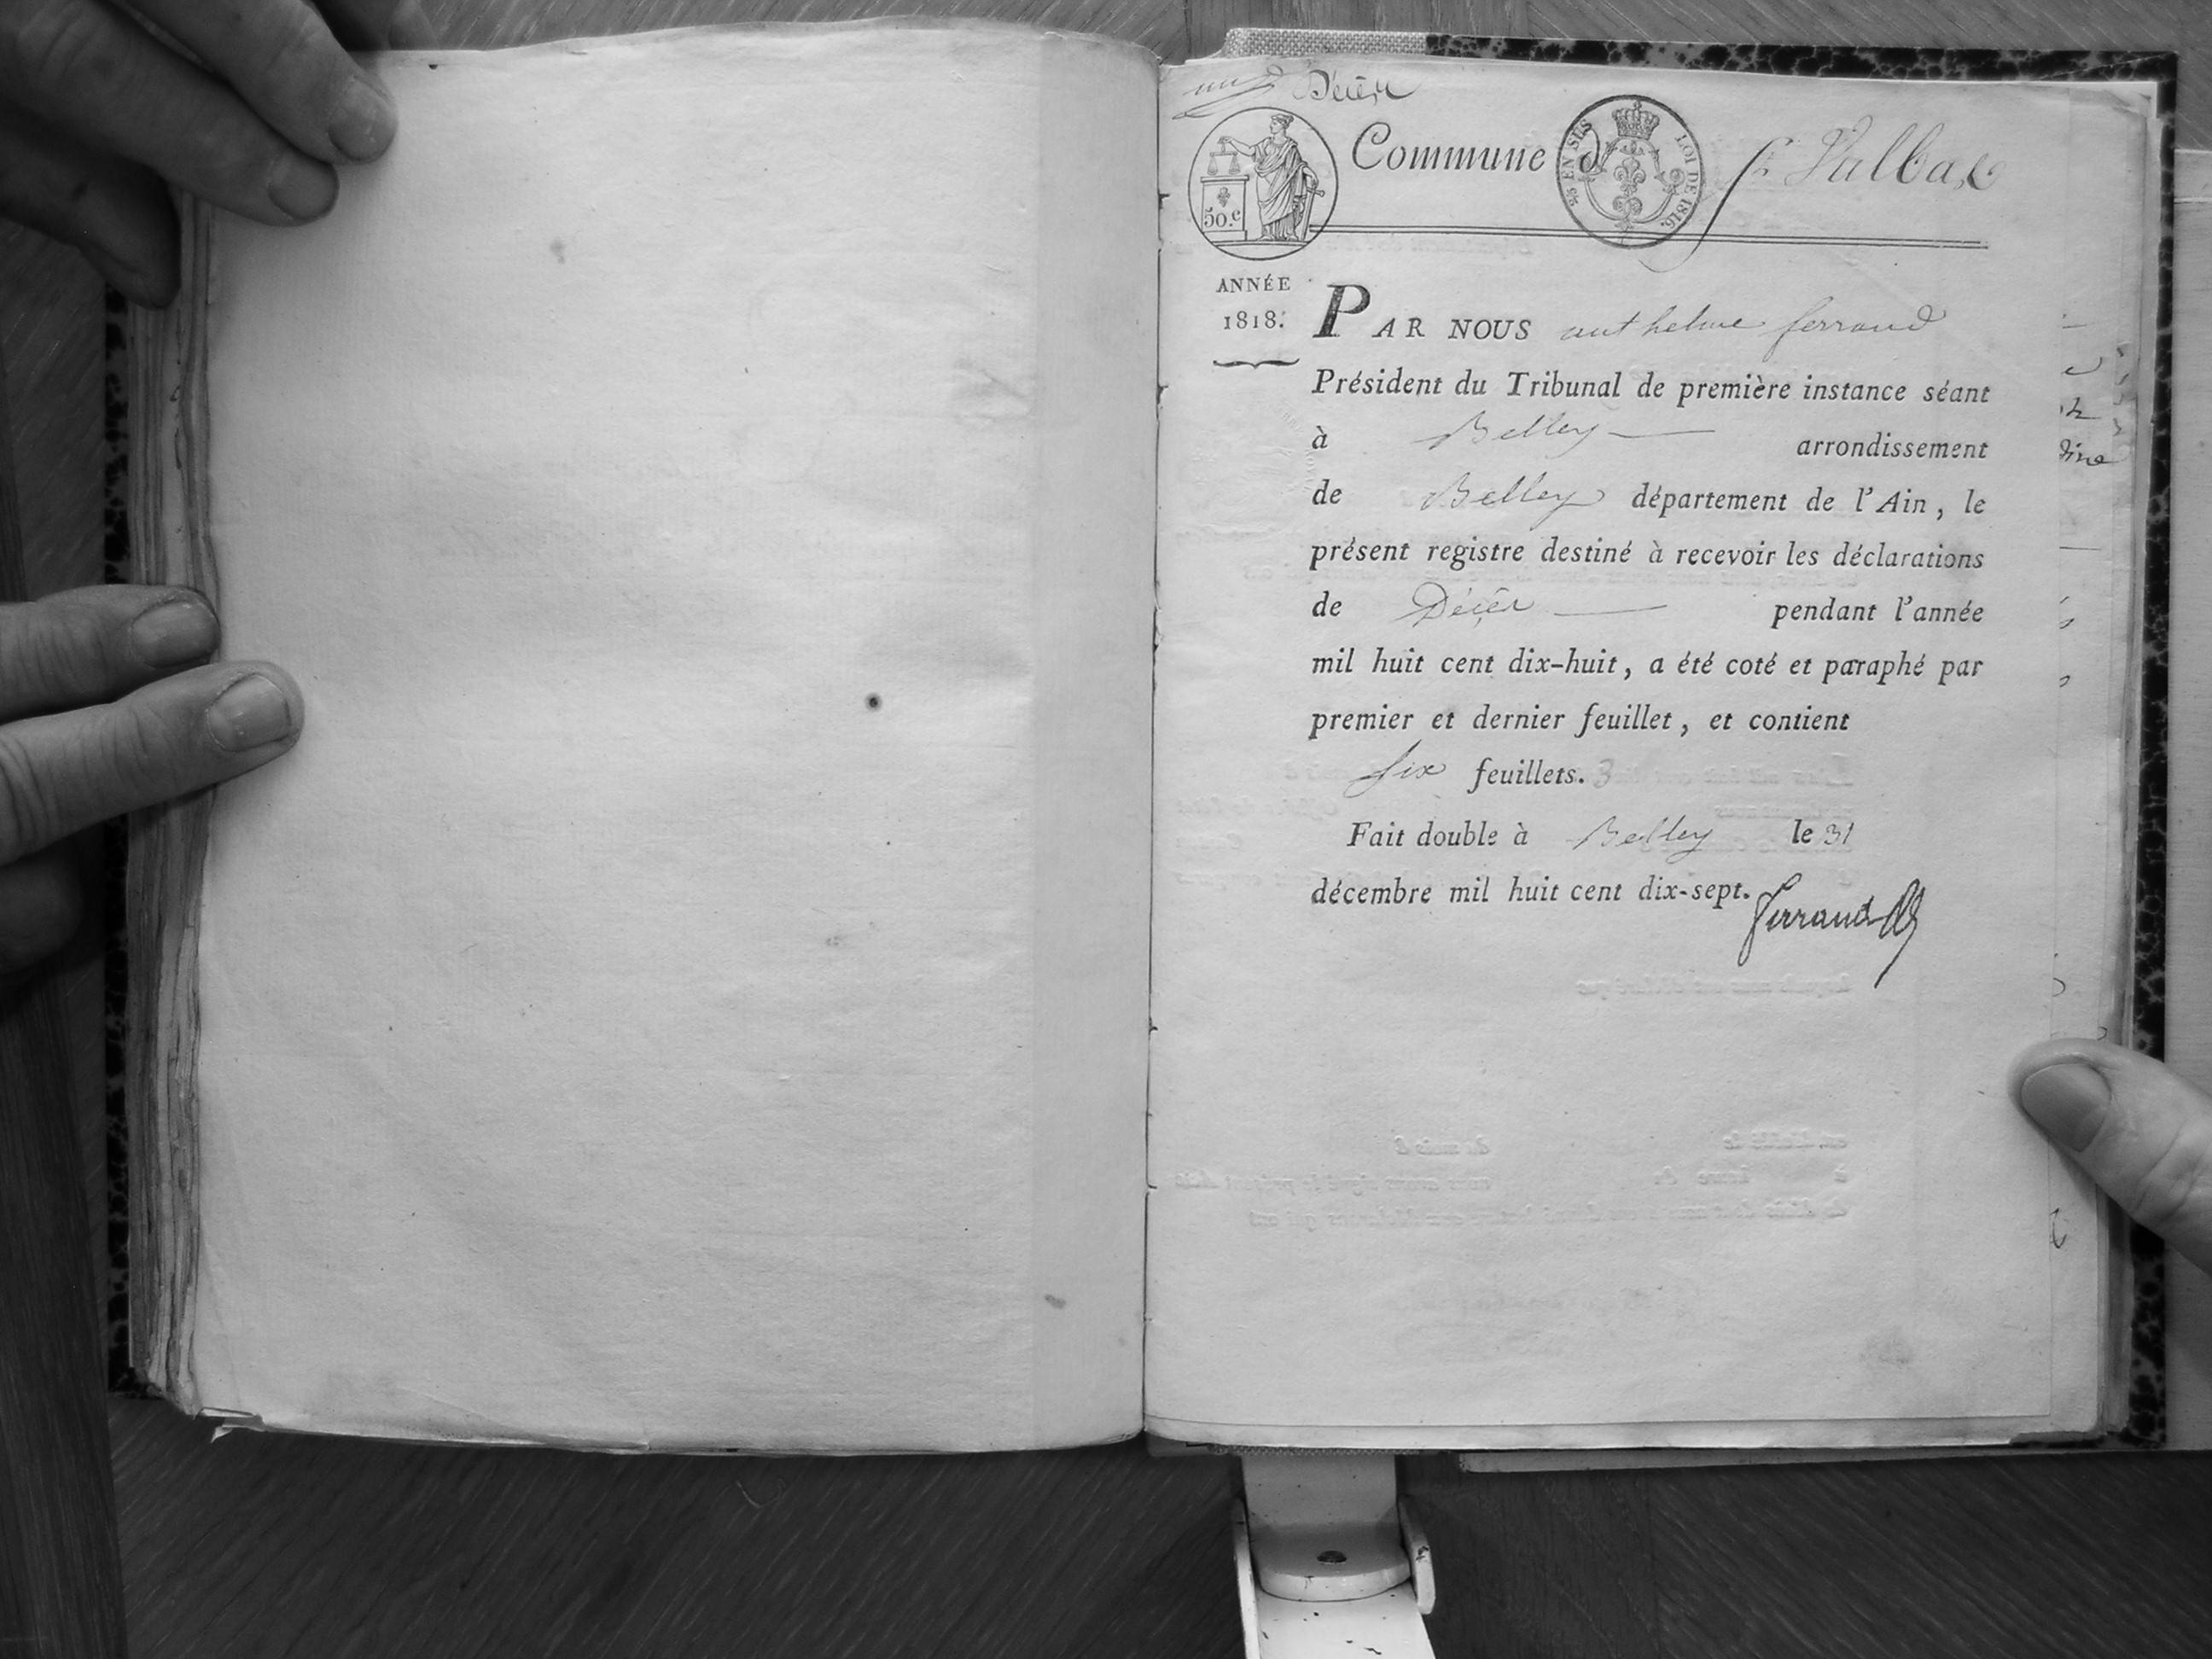 Décès
Commune de St. Valbas
50.c
25 EN SUS
LOI DE 1816.
ANNÉE
1818.
PAR NOUS anthelme ferrand
Président du Tribunal de première instance séant
à Belley arrondissement
de Belley département de l'Ain, le
présent registre destiné à recevoir les déclarations
de Décès pendant l'année
mil huit cent dix-huit, a été coté et paraphé par
premier et dernier feuillet, et contient
six feuillets.
Fait double à Belley le 31
décembre mil huit cent dix-sept.
ferrand